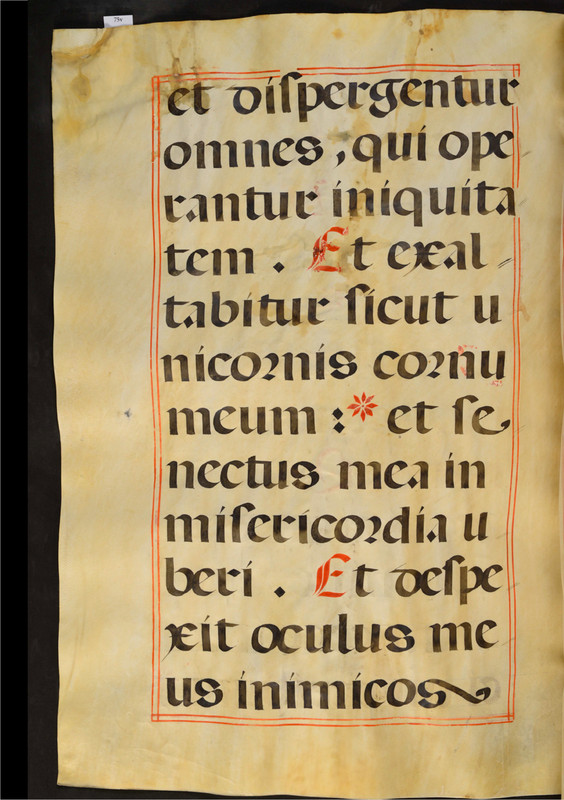 79v
et diſpergentur
omnes, qui ope
rantur iniquita
tem. Et exal-
tabitur ſicut u
nicoꝛnis coꝛnu
meum :* et ſe
nectus mea in
miſericoꝛdia u
beri. Et deſpe
xit oculus me
us inimicos